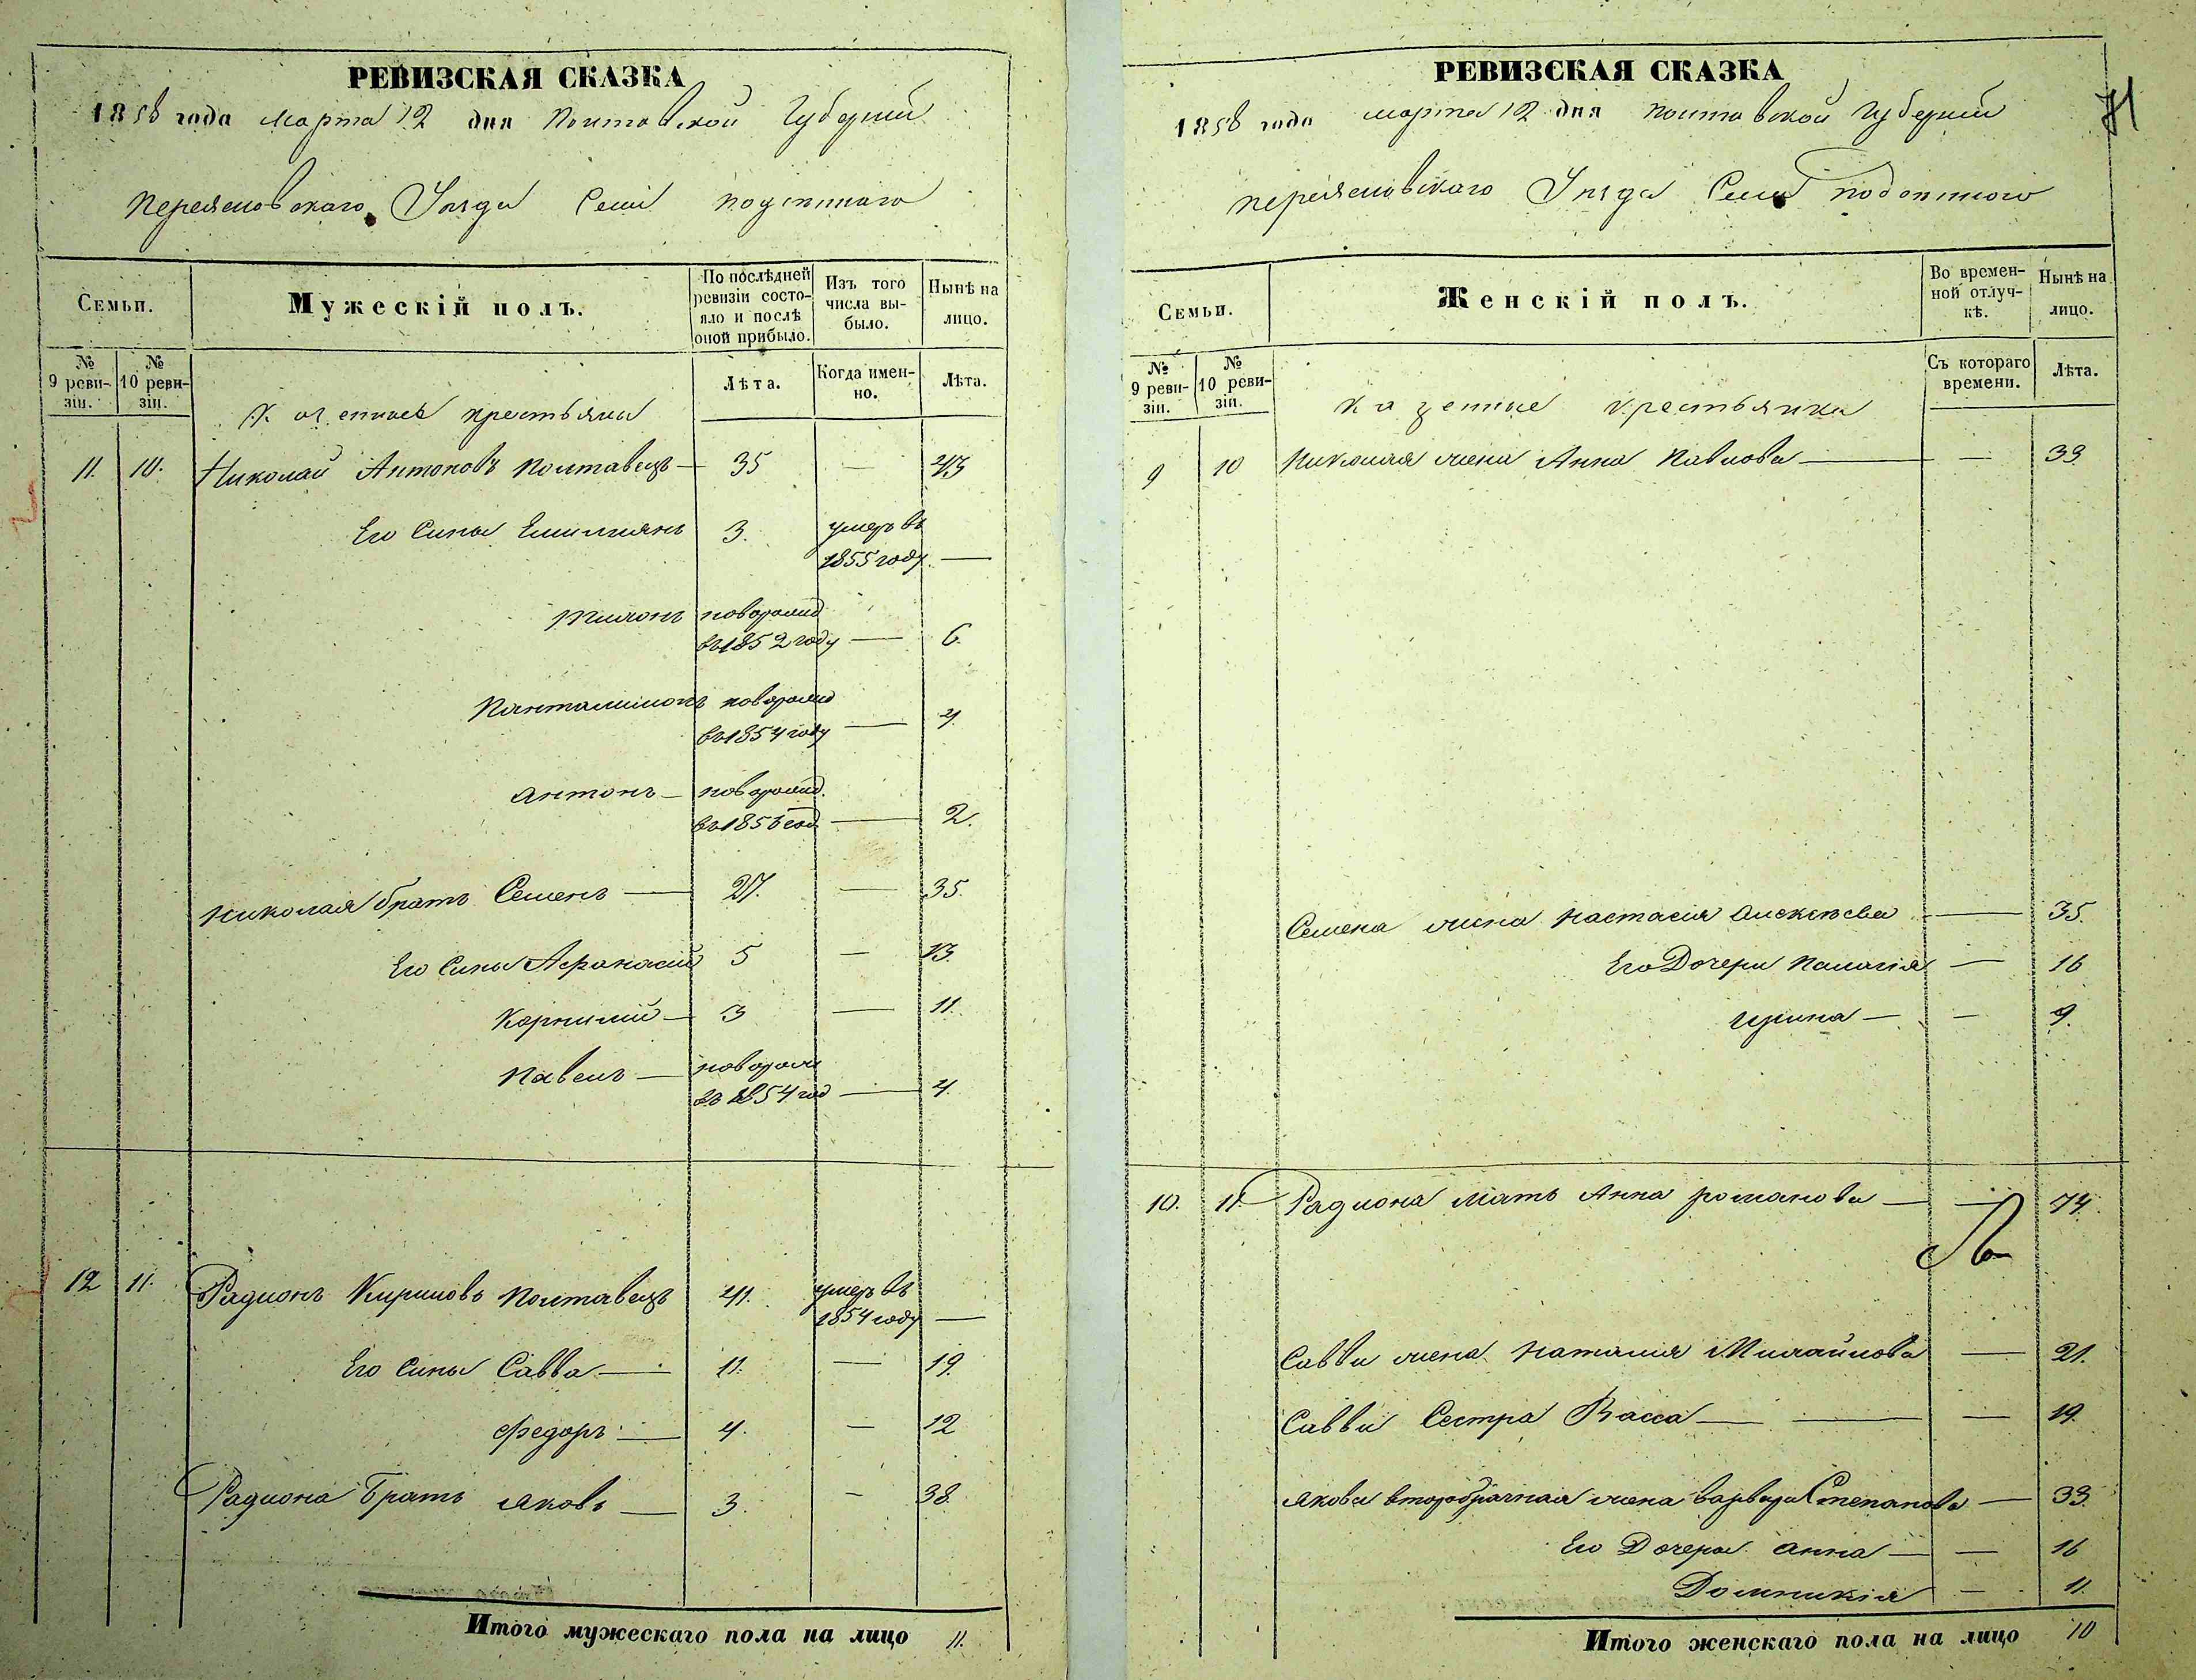 РЕВИЗСКАЯ СКАЗКА
1858 года марта 12 дня Полтавской Губернии
Переяславскаго Уезда Села
Семьи.
Мужескій полъ.
По послѣдней ревизіи состояло и послѣ оной прибыло.
Изъ того числа выбыло.
Нынѣ на лицо.
№ 9 ревизіи.
№ 10 ревизіи.
Лѣта.
Когда именно.
Лѣта.
Казенные крестьяны
11. 10. Николай Антоновъ Полтавецъ — 35 — 43
Его Сыны Емилиянъ 3. умеръ въ
1855 году. —
Тихонъ новорожд
въ 1852 году — 6.
Панталимонъ новорожд
въ 1854 году — 4.
Антонъ — новорожд.
въ 1856 год. — 2.
Николая братъ Семенъ — 27. — 35.
Его Сыны Афанасий 5 — 13.
Корнилий — 3 — 11.
Павелъ — новорож
въ 1854 год — 4.
12 11. Радионъ Кириловъ Полтавецъ 41. умеръ въ
1854 году —
Его Сыны Савва — 11. — 19.
Федоръ — 4. — 12
Радиона Братъ Яковъ — 3. — 38.
Итого мужескаго пола на лицо 11.
РЕВИЗСКАЯ СКАЗКА
71
1858 года марта 12 дня Полтавской Губернии
Переяславскаго Уезда Села
Семьи.
Женскій полъ.
Во временной отлучкѣ.
Нынѣ на лицо.
№ 9 ревизіи.
№ 10 ревизіи.
Съ котораго времени.
Лѣта.
Казенные крестьянки
9 10 Николая жена Анна Павлова — — 39.
Семена жена Настасия Алексѣева — 35.
Его Дочери Палагія — 16
Ирина — — 9.
10. 11. Радиона Мать Анна Романова — — 74.
Саввы жена Наталия Михайлова — 21.
Саввы Сестра Васса — — — 19.
Якова второбрачная жена Варвара Степанова — 33.
Его Дочери Анна — — 16
Домникія — 11.
Итого женскаго пола на лицо 10